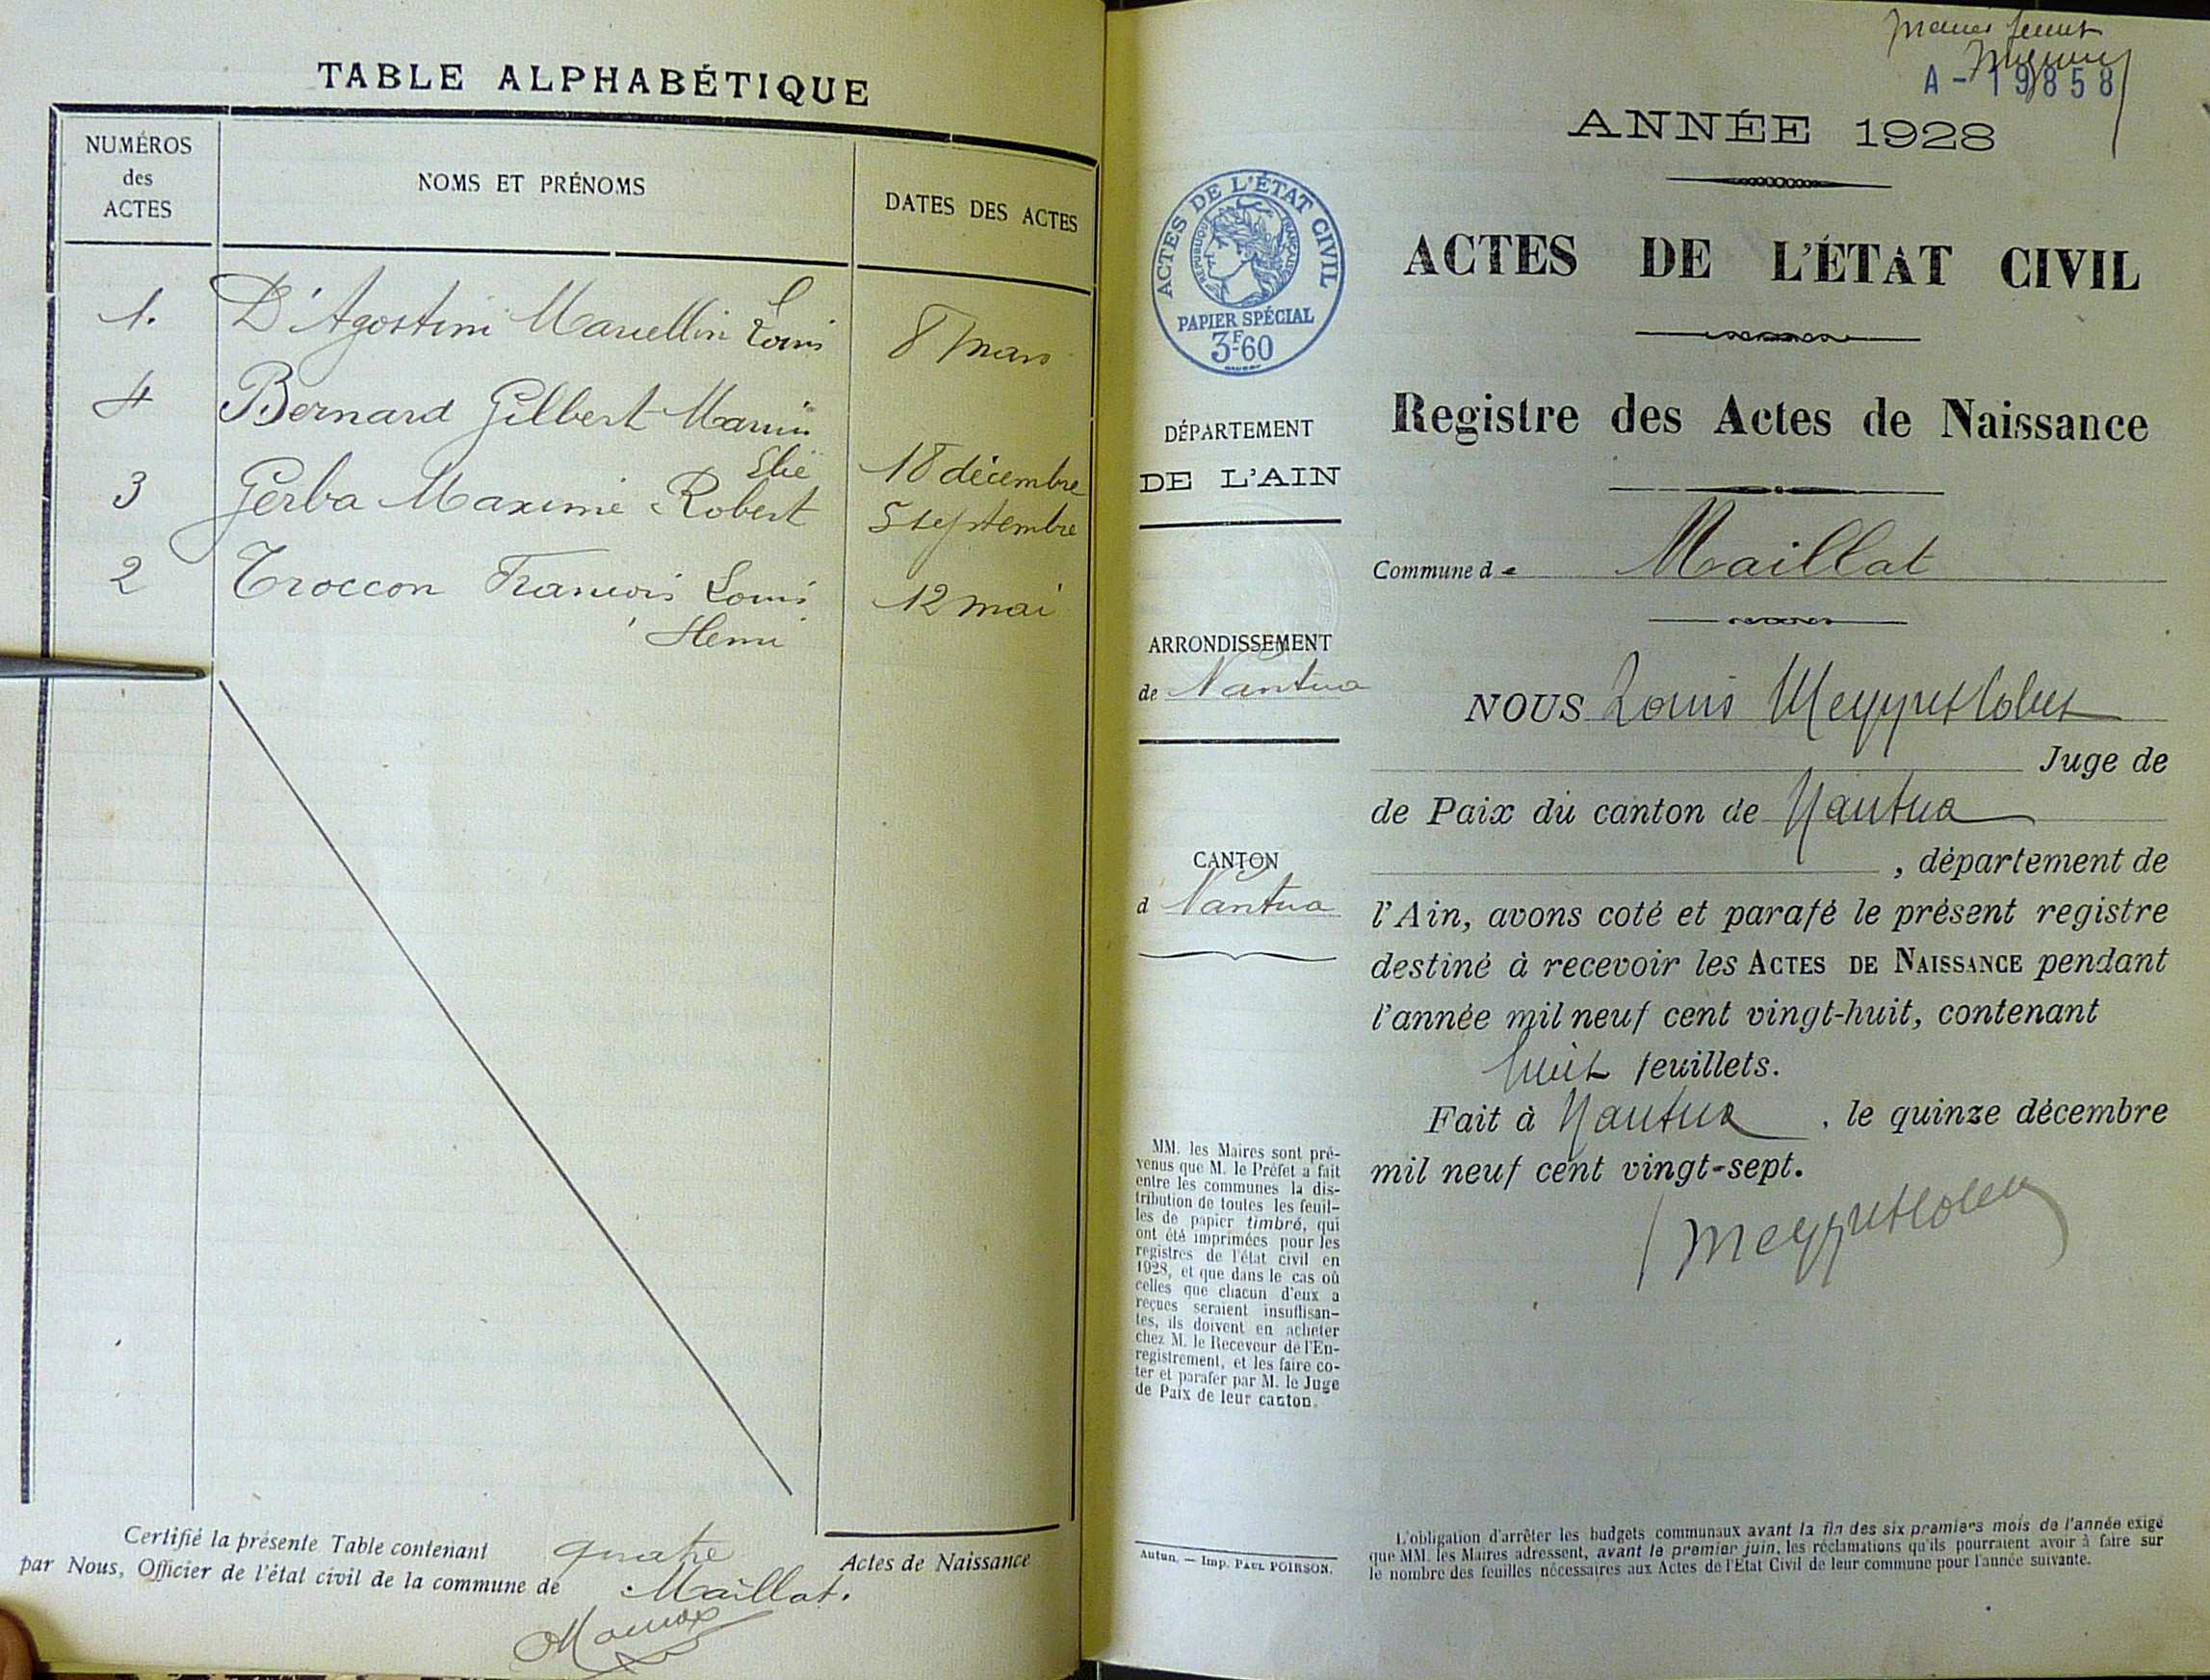 TABLE ALPHABÉTIQUE
NUMÉROS
des
ACTES
NOMS ET PRÉNOMS
DATES DES ACTES
1. D'Agostini Marcellin Louis 8 mars
4 Bernard Gilbert Marius
Elie 18 décembre
3 Gerba Maxime Robert 5 septembre
2 Troccon François Louis 12 mai
Henri
Certifié la présente Table contenant quatre Actes de Naissance
par Nous, Officier de l'état civil de la commune de Maillat.
A-19858
ANNÉE 1928
ACTES DE L'ÉTAT CIVIL
RÉPUBLIQUE FRANÇAISE
PAPIER SPÉCIAL
3F60
ACTES DE L'ÉTAT CIVIL
Registre des Actes de Naissance
DÉPARTEMENT
DE L'AIN
Commune de Maillat
ARRONDISSEMENT
de Nantua
CANTON
d Nantua
NOUS Louis
Juge de
de Paix du canton de Nantua
, département de
l'Ain, avons coté et parafé le présent registre
destiné à recevoir les ACTES DE NAISSANCE pendant
l'année mil neuf cent vingt-huit, contenant
huit feuillets.
Fait à Nantua, le quinze décembre
mil neuf cent vingt-sept.
MM. les Maires sont pré-
venus que M. le Préfet a fait
entre les communes la dis-
tribution de toutes les feuil-
les de papier timbré, qui
ont été imprimées pour les
registres de l'état civil en
1928, et que dans le cas où
celles que chacun d'eux a
reçues seraient insuffisan-
tes, ils doivent en acheter
chez M. le Receveur de l'En-
registrement, et les faire co-
ter et parafer par M. le Juge
de Paix de leur canton.
Autun. — Imp. PAUL POIRSON.
L'obligation d'arrêter les budgets communaux avant la fin des six premiers mois de l'année exige
que MM. les Maires adressent, avant le premier juin, les réclamations qu'ils pourraient avoir à faire sur
le nombre des feuilles nécessaires aux Actes de l'État Civil de leur commune pour l'année suivante.